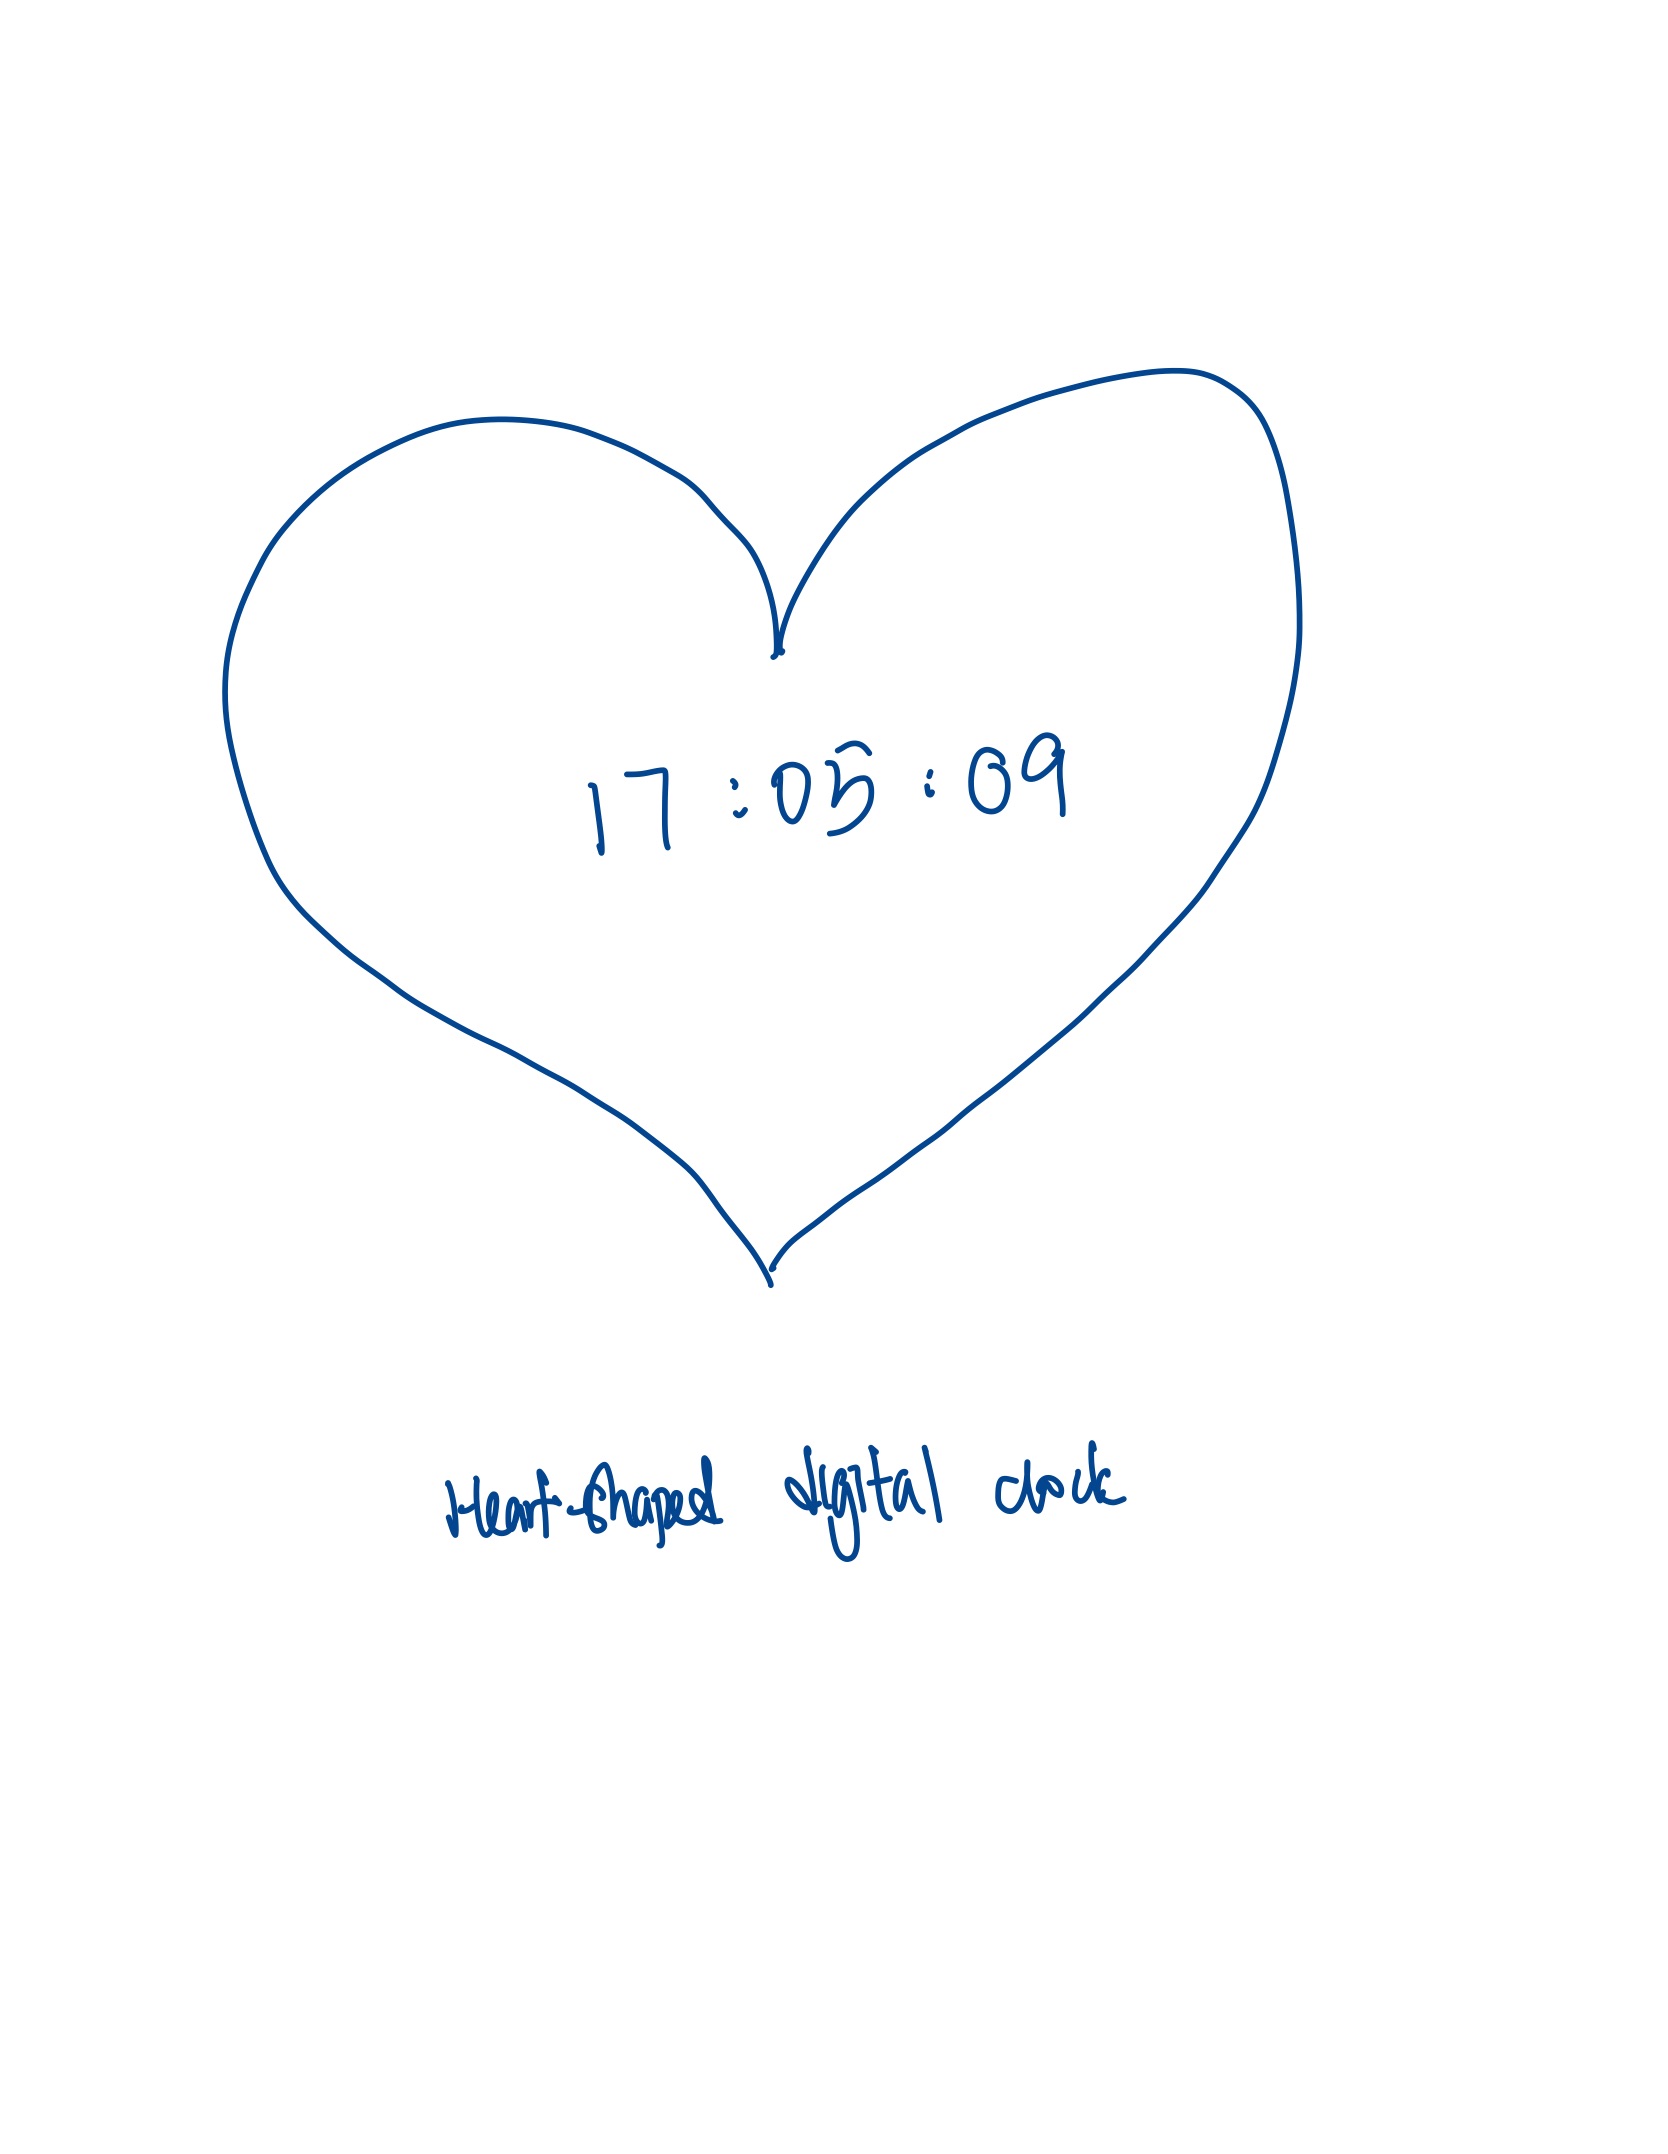 17:05:09
Heart-Shaped digital clock